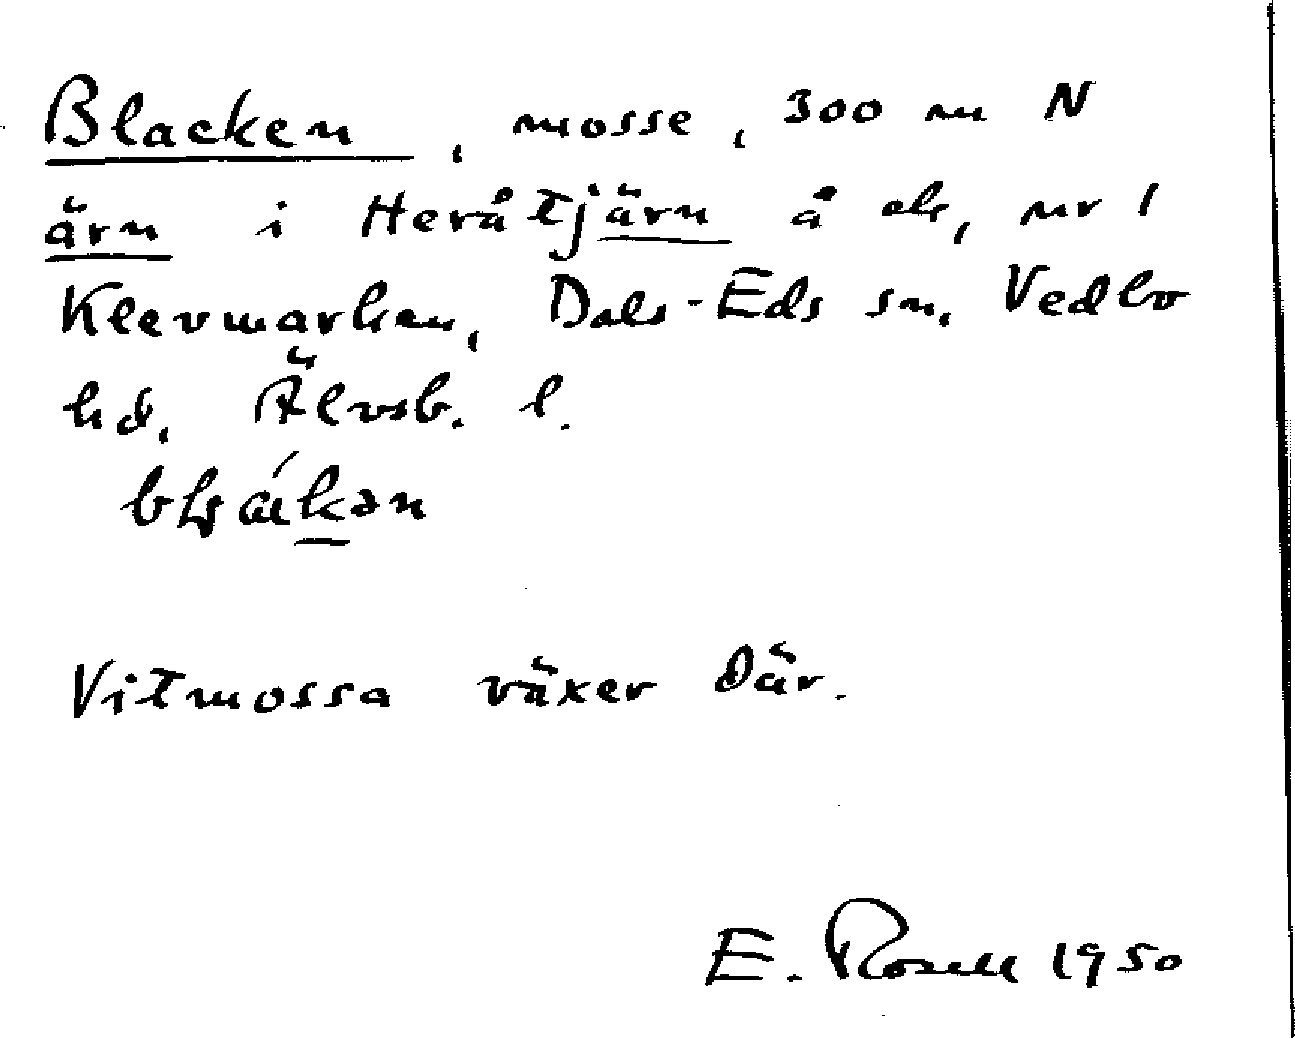 Blacken, mosse, 300 m N
ärn i Heråtjärn å ek, nr 1
Klevmarken, Dals-Eds sn, Vedbo
hd, Älvsb. l.
Vitmossa växer där.
E. Rosell 1950